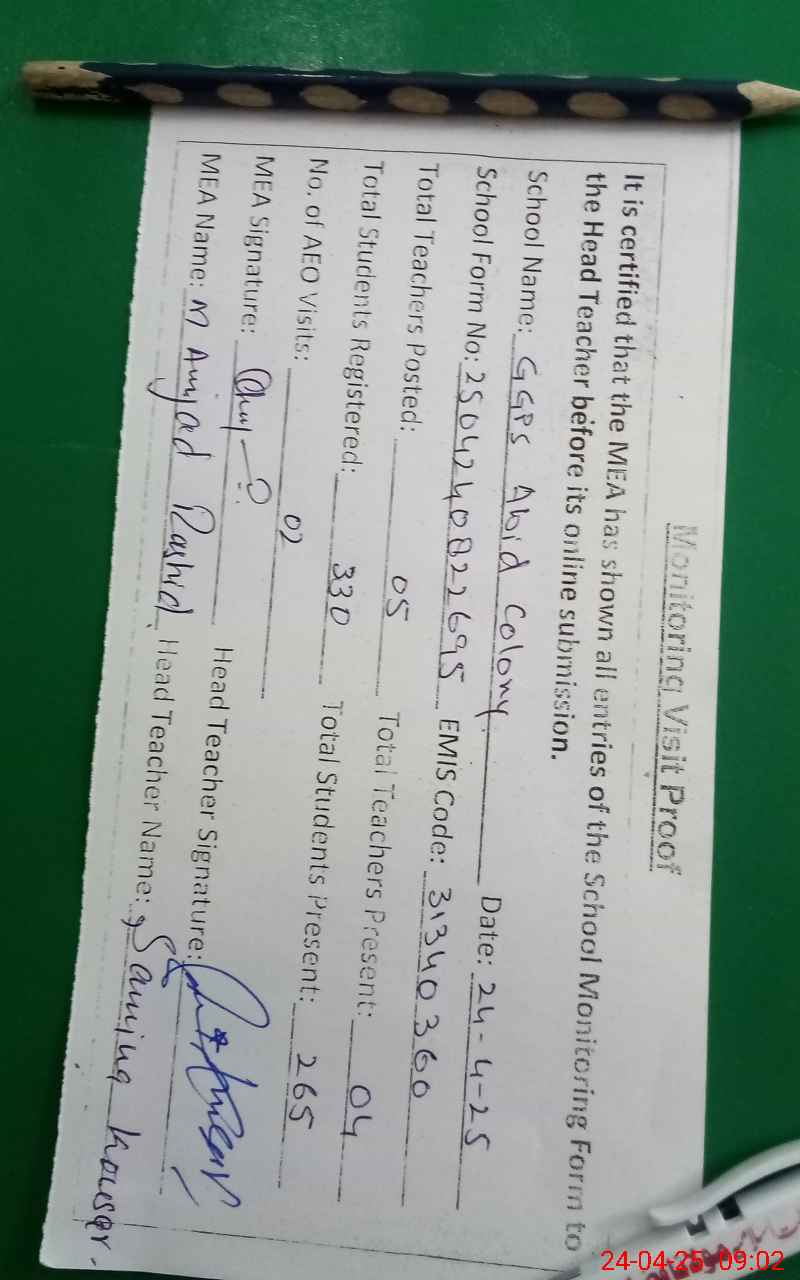 Monitoring Visit Proof
It is certified that the MEA has shown all entries of the School Monitoring Form to
the Head Teacher before its online submission.
School Name: GGPS Abid Colony Date: 24-4-25
School Form No: 2504240822695 EMIS Code: 31340360
Total Teachers Posted: 05 Total Teachers Present: 04
Total Students Registered: 330 Total Students Present: 265
No. of AEO Visits: 02
MEA Signature: Head Teacher Signature:
MEA Name: M Amjad Rashid Head Teacher Name: Samina Kousar.
24-04-25 09:02